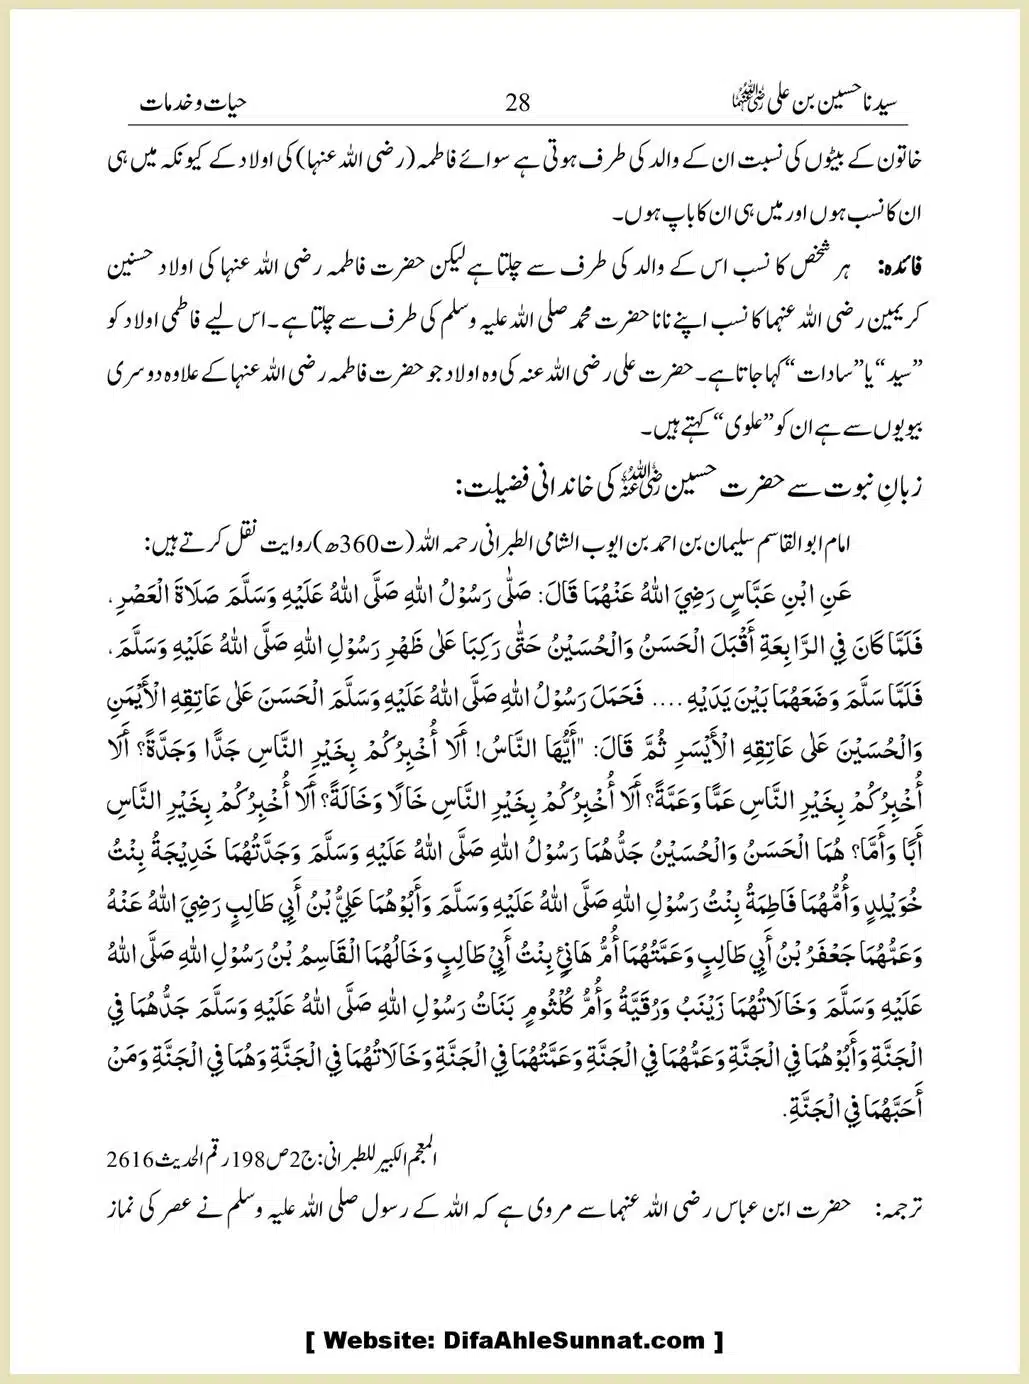 سیدنا حسین بن علی رضی اللہ عنہما 28 حیات و خدمات
خاتون کے بیٹوں کی نسبت ان کے والد کی طرف ہوتی ہے سوائے فاطمہ (رضی اللہ عنہا) کی اولاد کے کیونکہ میں ہی
ان کا نسب ہوں اور میں ہی ان کا باپ ہوں۔
فائدہ: ہر شخص کا نسب اس کے والد کی طرف سے چلتا ہے لیکن حضرت فاطمہ رضی اللہ عنہا کی اولاد حسنین
کریمین رضی اللہ عنہما کا نسب اپنے نانا حضرت محمد صلی اللہ علیہ وسلم کی طرف سے چلتا ہے۔ اس لیے فاطمی اولاد کو
”سید“ یا ”سادات“ کہا جاتا ہے۔ حضرت علی رضی اللہ عنہ کی وہ اولاد جو حضرت فاطمہ رضی اللہ عنہا کے علاوہ دوسری
بیویوں سے ہے ان کو ”علوی“ کہتے ہیں۔
زبانِ نبوت سے حضرت حسین رضی اللہ عنہ کی خاندانی فضیلت:
امام ابو القاسم سلیمان بن احمد بن ایوب الشامی الطبرانی رحمہ اللہ (ت360ھ) روایت نقل کرتے ہیں:
عَنِ ابْنِ عَبَّاسٍ رَضِيَ اللهُ عَنْهُمَا قَالَ: صَلّٰى رَسُوْلُ اللهِ صَلَّى اللهُ عَلَيْهِ وَسَلَّمَ صَلَاةَ الْعَصْرِ،
فَلَمَّا كَانَ فِي الرَّابِعَةِ أَقْبَلَ الْحَسَنُ وَالْحُسَيْنُ حَتّٰى رَكِبَا عَلٰى ظَهْرِ رَسُوْلِ اللهِ صَلَّى اللهُ عَلَيْهِ وَسَلَّمَ،
فَلَمَّا سَلَّمَ وَضَعَهُمَا بَيْنَ يَدَيْهِ .... فَحَمَلَ رَسُوْلُ اللهِ صَلَّى اللهُ عَلَيْهِ وَسَلَّمَ الْحَسَنَ عَلٰى عَاتِقِهِ الْأَيْمَنِ
وَالْحُسَيْنَ عَلٰى عَاتِقِهِ الْأَيْسَرِ ثُمَّ قَالَ: "أَيُّهَا النَّاسُ! أَلَا أُخْبِرُكُمْ بِخَيْرِ النَّاسِ جَدًّا وَجَدَّةً؟ أَلَا
أُخْبِرُكُمْ بِخَيْرِ النَّاسِ عَمًّا وَعَمَّةً؟ أَلَا أُخْبِرُكُمْ بِخَيْرِ النَّاسِ خَالًا وَخَالَةً؟ أَلَا أُخْبِرُكُمْ بِخَيْرِ النَّاسِ
أَبًا وَأُمًّا؟ هُمَا الْحَسَنُ وَالْحُسَيْنُ جَدُّهُمَا رَسُوْلُ اللهِ صَلَّى اللهُ عَلَيْهِ وَسَلَّمَ وَجَدَّتُهُمَا خَدِيْجَةُ بِنْتُ
خُوَيْلِدٍ وَأُمُّهُمَا فَاطِمَةُ بِنْتُ رَسُوْلِ اللهِ صَلَّى اللهُ عَلَيْهِ وَسَلَّمَ وَأَبُوْهُمَا عَلِيُّ بْنُ أَبِي طَالِبٍ رَضِيَ اللهُ عَنْهُ
وَعَمُّهُمَا جَعْفَرُ بْنُ أَبِي طَالِبٍ وَعَمَّتُهُمَا أُمُّ هَانِئٍ بِنْتُ أَبِيْ طَالِبٍ وَخَالُهُمَا الْقَاسِمُ بْنُ رَسُوْلِ اللهِ صَلَّى اللهُ
عَلَيْهِ وَسَلَّمَ وَخَالَاتُهُمَا زَيْنَبُ وَرُقَيَّةُ وَأُمُّ كُلْثُومٍ بَنَاتُ رَسُوْلِ اللهِ صَلَّى اللهُ عَلَيْهِ وَسَلَّمَ جَدُّهُمَا فِي
الْجَنَّةِ وَأَبُوْهُمَا فِي الْجَنَّةِ وَعَمُّهُمَا فِي الْجَنَّةِ وَعَمَّتُهُمَا فِي الْجَنَّةِ وَخَالَاتُهُمَا فِي الْجَنَّةِ وَهُمَا فِي الْجَنَّةِ وَمَنْ
أَحَبَّهُمَا فِي الْجَنَّةِ.
المعجم الکبیر للطبرانی: ج2 ص198 رقم الحدیث 2616
ترجمہ: حضرت ابن عباس رضی اللہ عنہما سے مروی ہے کہ اللہ کے رسول صلی اللہ علیہ وسلم نے عصر کی نماز
[ Website: DifaAhleSunnat.com ]